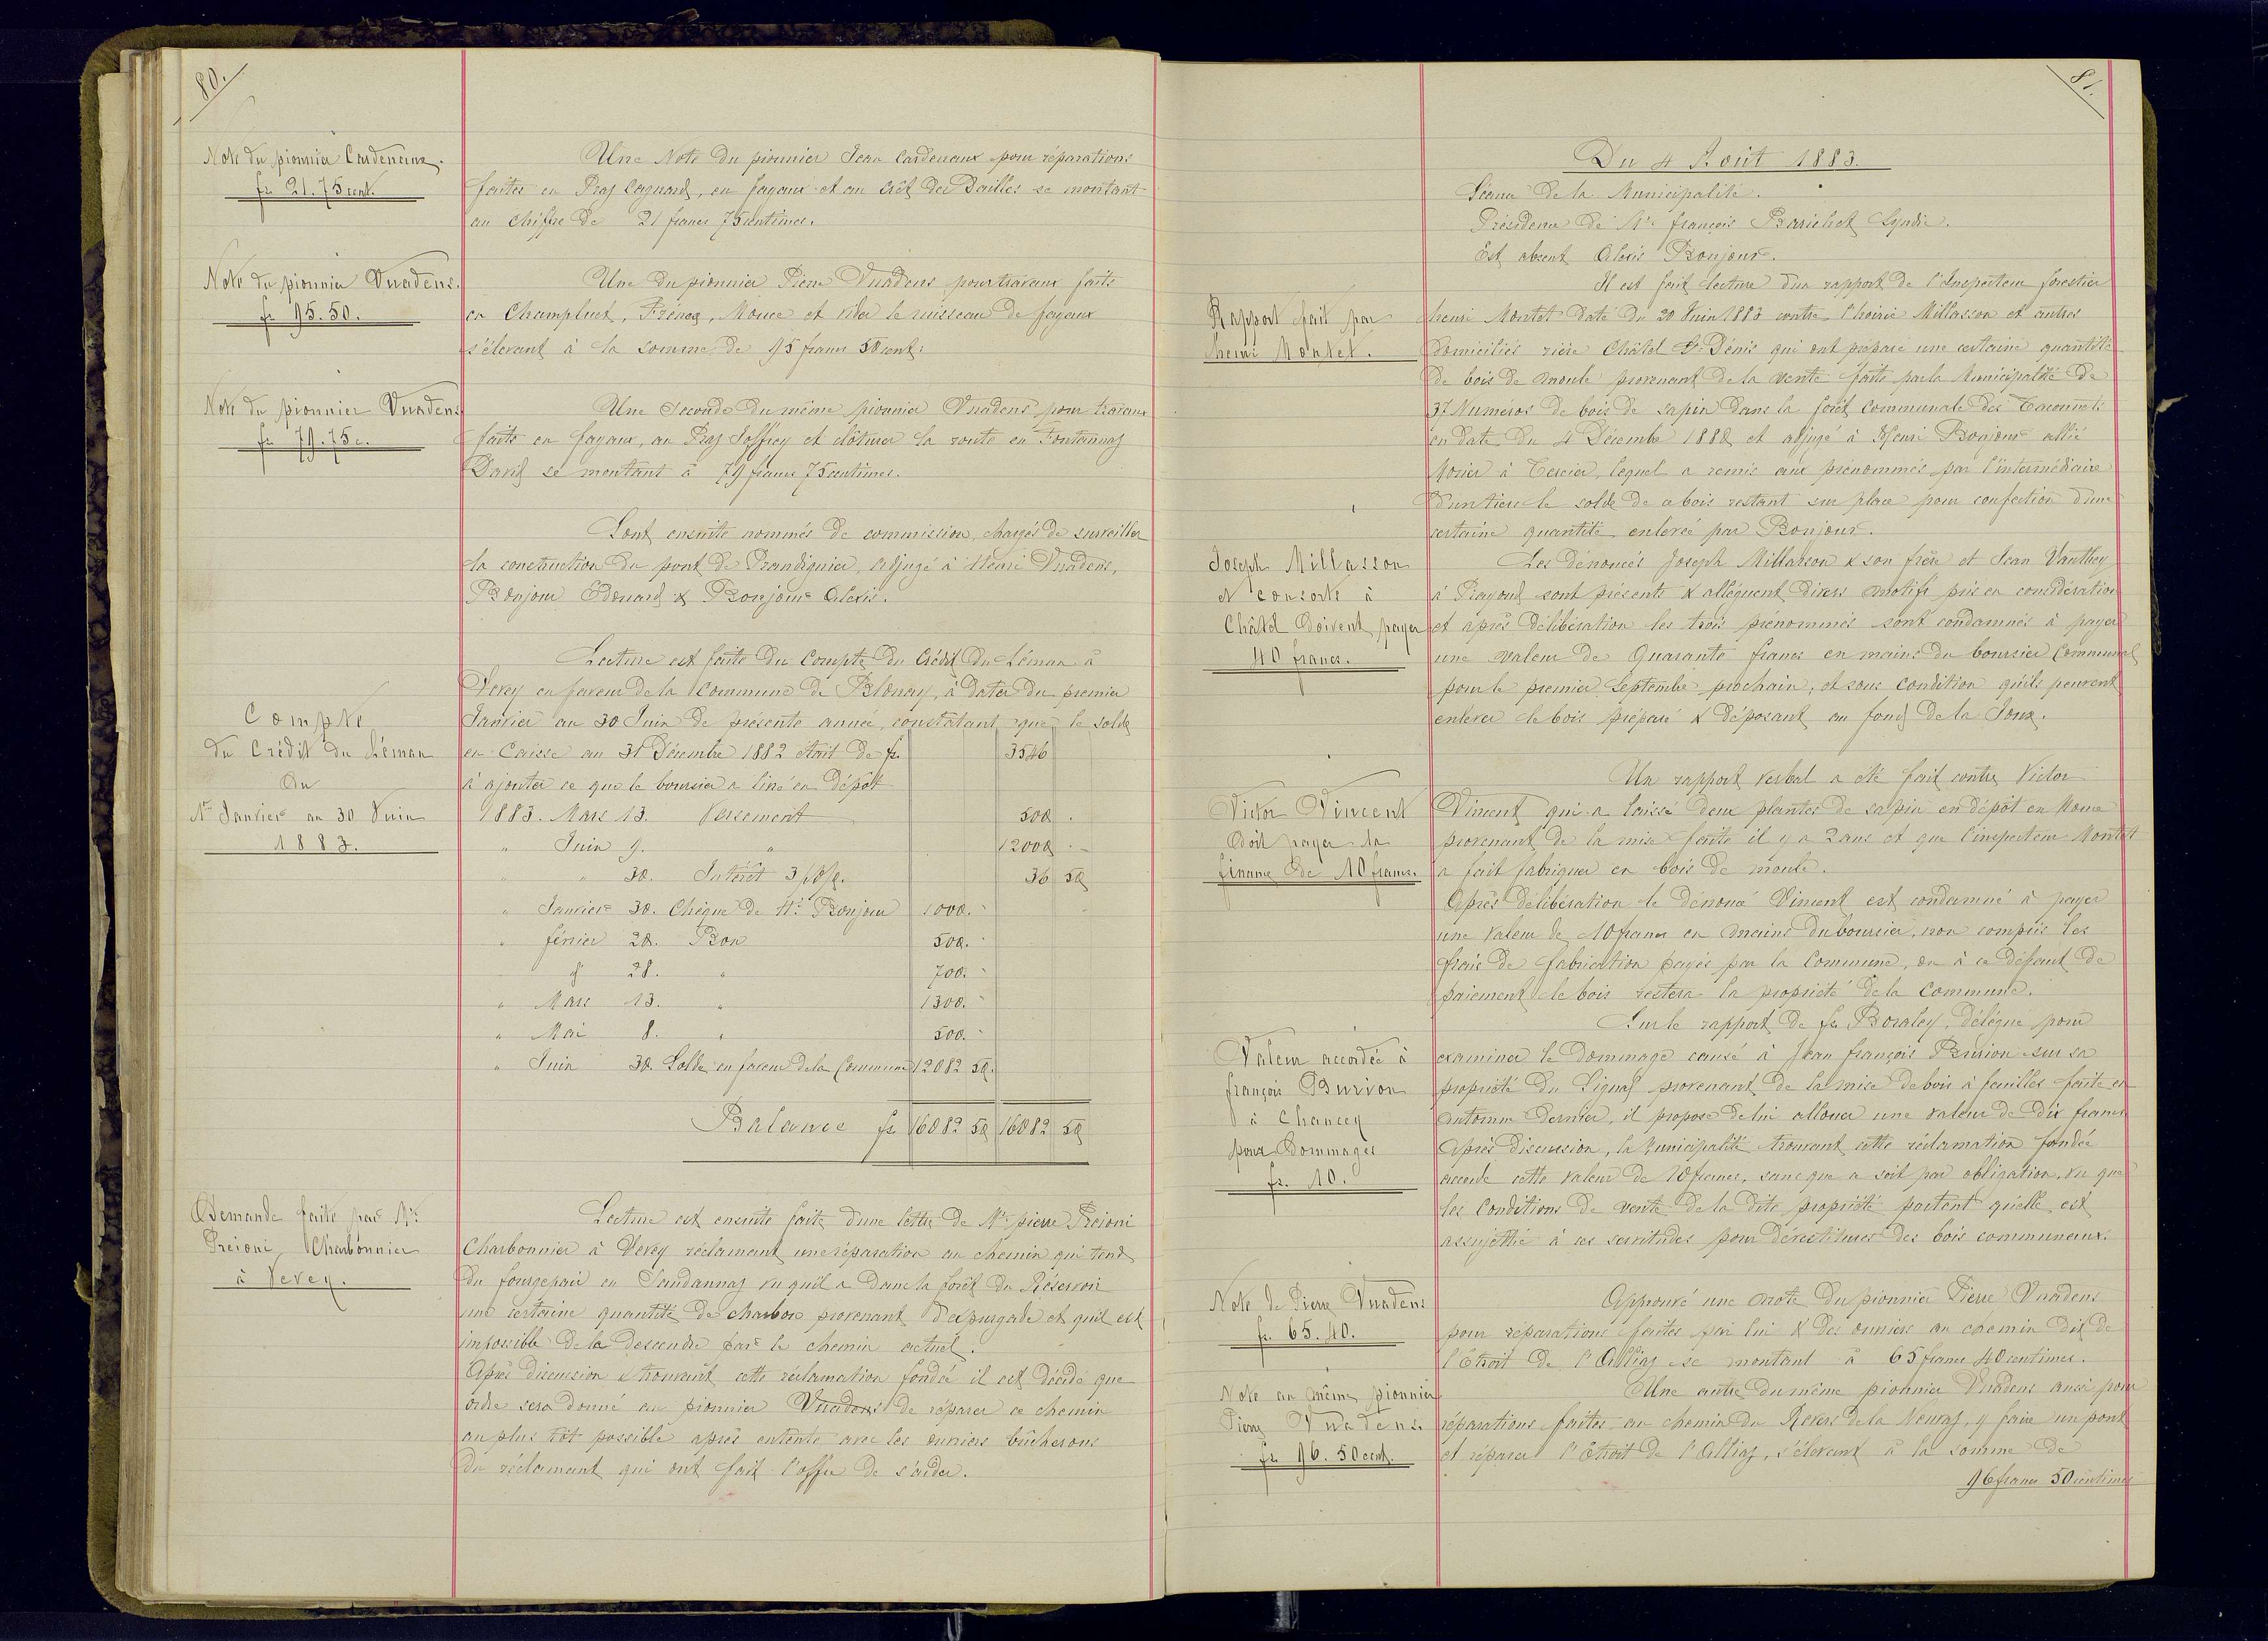 80.
Note du pionnier Cardeneaux.
fr. 21.75 cent.
Une Note du pionnier Jean Cardeneaux pour réparations
faites en Praz Cagnard, en fayaux et au Crêt des Bailles se montant
au chiffre de 21 francs 75 centimes.
Note du pionnier Vuadens.
fr. 95.50.
Une du pionnier Pierre Vuadens pour travaux faits
en Champluet, Frénes, Mouce et vider le ruisseau de fayaux
s'élevant à la somme de 95 francs 50 cent.
Note du pionnier Vuadens
fr. 79.75 c.
Une seconde du même pionnier Vuadens pour travaux
faits en fayaux, au Praz Joffrey et clôturer la route en Fontannaz
David se montant à 79 francs 75 centimes.
Sont ensuite nommés de commission, chargés de surveiller
la construction du pont de Prandignier, adjugé à Henri Vuadens,
Bonjour Edouard & Bonjour Alexis.
Compte
du Crédit du Léman
Du
1er Janvier au 30 Juin
1883.
Lecture est faite du Compte du Crédit du Léman à
Vevey en faveur de la Commune de Blonay, à dater du premier
Janvier au 30 Juin de présente année, constatant que le solde
en Caisse au 31 Décembre 1882 était de fr. 3546
à ajouter ce que le boursier a livré en dépôt
1883. Mars 13. Versement 500 .
" Juin 9. " 12000 . -
" " 30. Intérêt 3 p%. 36 50
" Janvier 30. Chèque de Hri Bonjour 1000. -
" février 20. Bon 500. -
d° 28. " 700. -
" Mars 13. " 1300. -
" Mai 8. " 500. -
" Juin 30. Solde en faveur de la Commune 12082 50.
Balance fr. 16082 50 16082 50
Demande faite par Mr.
Preioni, Charbonnier
à Vevey.
Lecture est ensuite faite d'une lettre de Mr. pierre Preioni
Charbonnier à Vevey réclamant une réparation au chemin qui tend
du foursgepair en Saudannaz vu qu'il a dans la forêt du Réservoir
une certaine quantité de charbon provenant d'expurgade et qu'il est
impossible de la descendre par le chemin actuel.
Après discussion & trouvant cette réclamation fondée il est décidé que
ordre sera donné au pionnier Vuadens de réparer ce chemin
au plus tôt possible après entente avec les ouvriers bûcherons
du réclamant qui ont fait l'offre de s'aider.
81.
Du 4 Août 1883.
Séance de la Municipalité.
Présidence de Mr. françois Barichet Syndic.
Est absent Alexis Bonjour.
Rapport fait par
henri Montet.
Il est fait lecture d'un rapport de l'Inspecteur forestier
henri Montet daté du 20 Juin 1883 contre l'hoirie Millasson et autres
domiciliés rière Châtel St. Dénis qui ont préparé une certaine quantité
de bois de moule provenant de la vente faite par la Municipalité de
37 Numéros de bois de sapin dans la forêt communale des Tacounets
en date du 4 Décembre 1882 et adjugé à Henri Bonjour allié
Monier à Tercier, lequel a remis aux prénommés par l'intermédiaire
d'un tiers le solde de ce bois restant sur place pour confection d'une
certaine quantité enlevée par Bonjour.
Joseph Millasson
et consorts à
Châtel doivent payer
40 francs.
Les dénoncés Joseph Millasson & son frère et Jean Vauthey
à Prayoud sont présents & allèguent divers motifs pris en considération
et après délibération les trois prénommés sont condamnés à payer
une valeur de Quarante francs en mains du boursier Communal
pour le premier Septembre prochain, et sous condition qu'ils peuvent
enlever le bois préparé & déposant au fond de la Joux.
Victor Vincent
Doit payer la
finance de 10 francs.
Un rapport verbal a été fait contre Victor
Vincent qui a laissé deux plantes de sapin en dépôt en Mouce
provenant de la mise faite il y a 2 ans et que l'inspecteur Montet
a fait fabriquer en bois de moule.
Après délibération le dénoncé Vincent est condamné à payer
une valeur de 10 francs en mains du boursier, non compris les
frais de fabrication payés par la Commune, ou à ce défaut de
paiement le bois restera la propriété de la Commune.
Valeur accordée à
françois Burion
à Chancey
pour Dommages
fr. 10.
Sur le rapport de fs. Boraley, délégué pour
examiner le dommage causé à Jean françois Burion sur sa
propriété du Signal provenant de la mise de bois à feuilles faite en
automne dernier, il propose de lui allouer une valeur de dix francs
Après discussion, la Municipalité trouvant cette réclamation fondée
accorde cette valeur de 10 francs, sans que ce soit par obligation, vu que
les conditions de vente de la dite propriété portent qu'elle est
assujettie à ces servitudes pour dévestitures des bois communaux.
Note de Pierre Vuadens
fr. 65.40.
Approuvé une note du pionnier Pierre Vuadens
pour réparations faites par lui & des ouvriers au chemin dit de
l'Etroit de l'Alliaz se montant à 65 francs 40 centimes.
Note au même pionnier
Pierre Vuadens.
fr. 96.50 cent.
Une autre du même pionnier Vuadens aussi pour
réparations faites au chemin du Revers de la Neuvaz, y faire un pont
et réparer l'Etroit de l'Alliaz, s'élevant à la somme de
96 francs 50 centimes